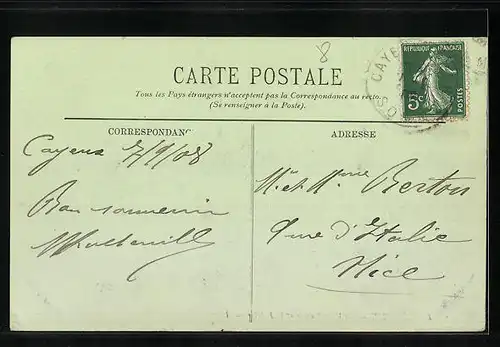 8
CAYE
REPUBLIQUE FRANÇAISE
5c
POSTES
CARTE POSTALE
Tous les Pays étrangers n'acceptent pas la Correspondance au recto.
(Se renseigner à la Poste).
CORRESPONDANC
Cayeux 2/9/08
Bon souvenir
ADRESSE
M. et Mme Berton
rue d'Italie
Nice